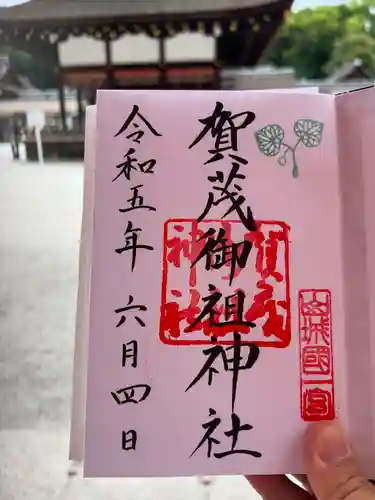 賀茂御祖神社
令和五年六月四日
山城國一宮